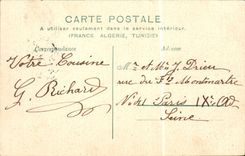 CARTE POSTALE
A utiliser seulement dans le service intérieur.
(FRANCE, ALGERIE, TUNISIE)
Correspondance
Adresse
Votre Cousine
G. Richard
Mr et Me J. Drieu
rue du Fg Montmartre
No 41 Paris IXe Ar
Seine